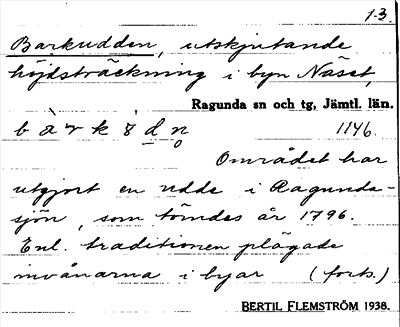 1-3.
Barkudden, utskjutande
höjdsträckning i byn Näset,
Ragunda sn och tg, Jämtl. län.
b à r k 8̀ d n̥ 1146.
Området har
utgjort en udde i Ragunda-
sjön, som tömdes år 1796.
Enl. traditionen plägade
invånarna i byar (forts.)
BERTIL FLEMSTRÖM 1938.